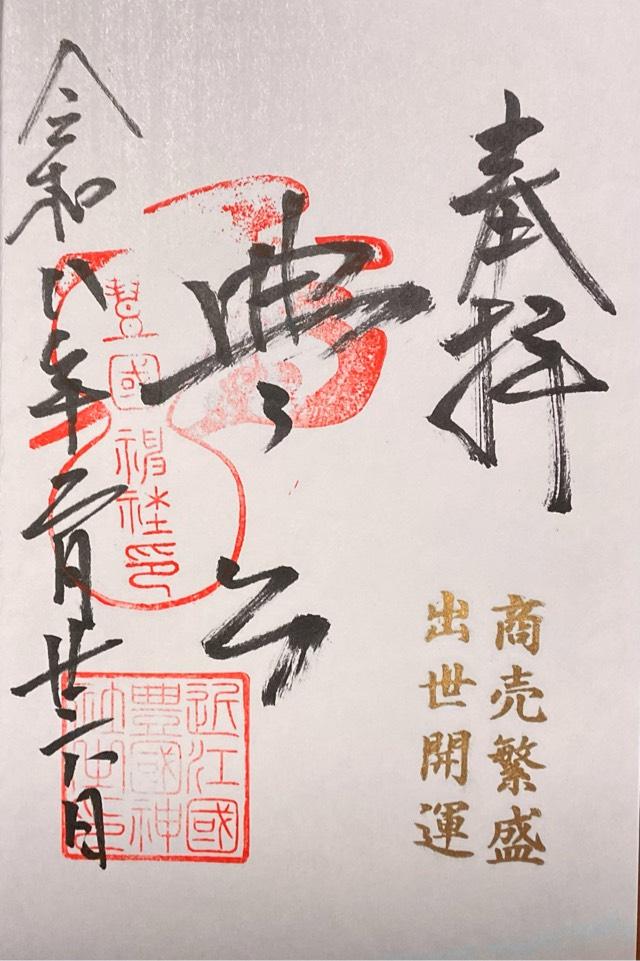 奉拝
商売繁盛
出世開運
豊公
令和八年二月廿六日
豊國神社印
近江國
豊國神
社之印